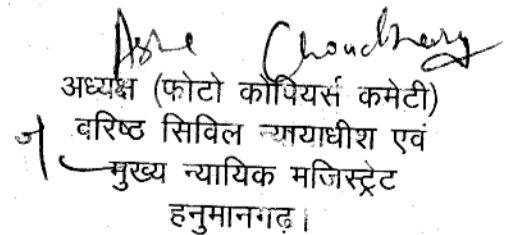 Asha Choudhary
अध्यक्ष (फोटो कॉपियर्स कमेटी)
वरिष्ठ सिविल न्यायाधीश एवं
मुख्य न्यायिक मजिस्ट्रेट
हनुमानगढ़।